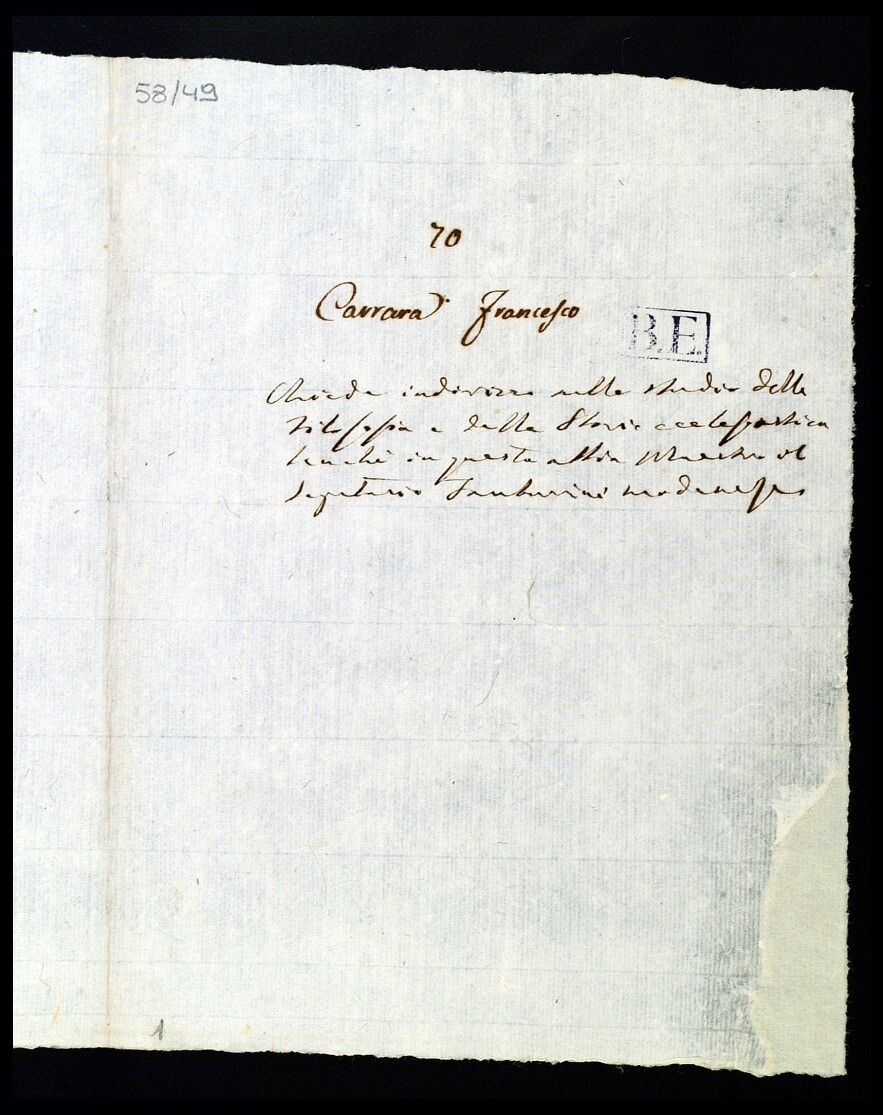 58/49
70
Carrara Francesco
B.E.
Chiede indirizzo nello studio della
Filosofia e della Storia ecclesiastica
benché in questa abbia Maestro il
segretario Tamburini modenese
1